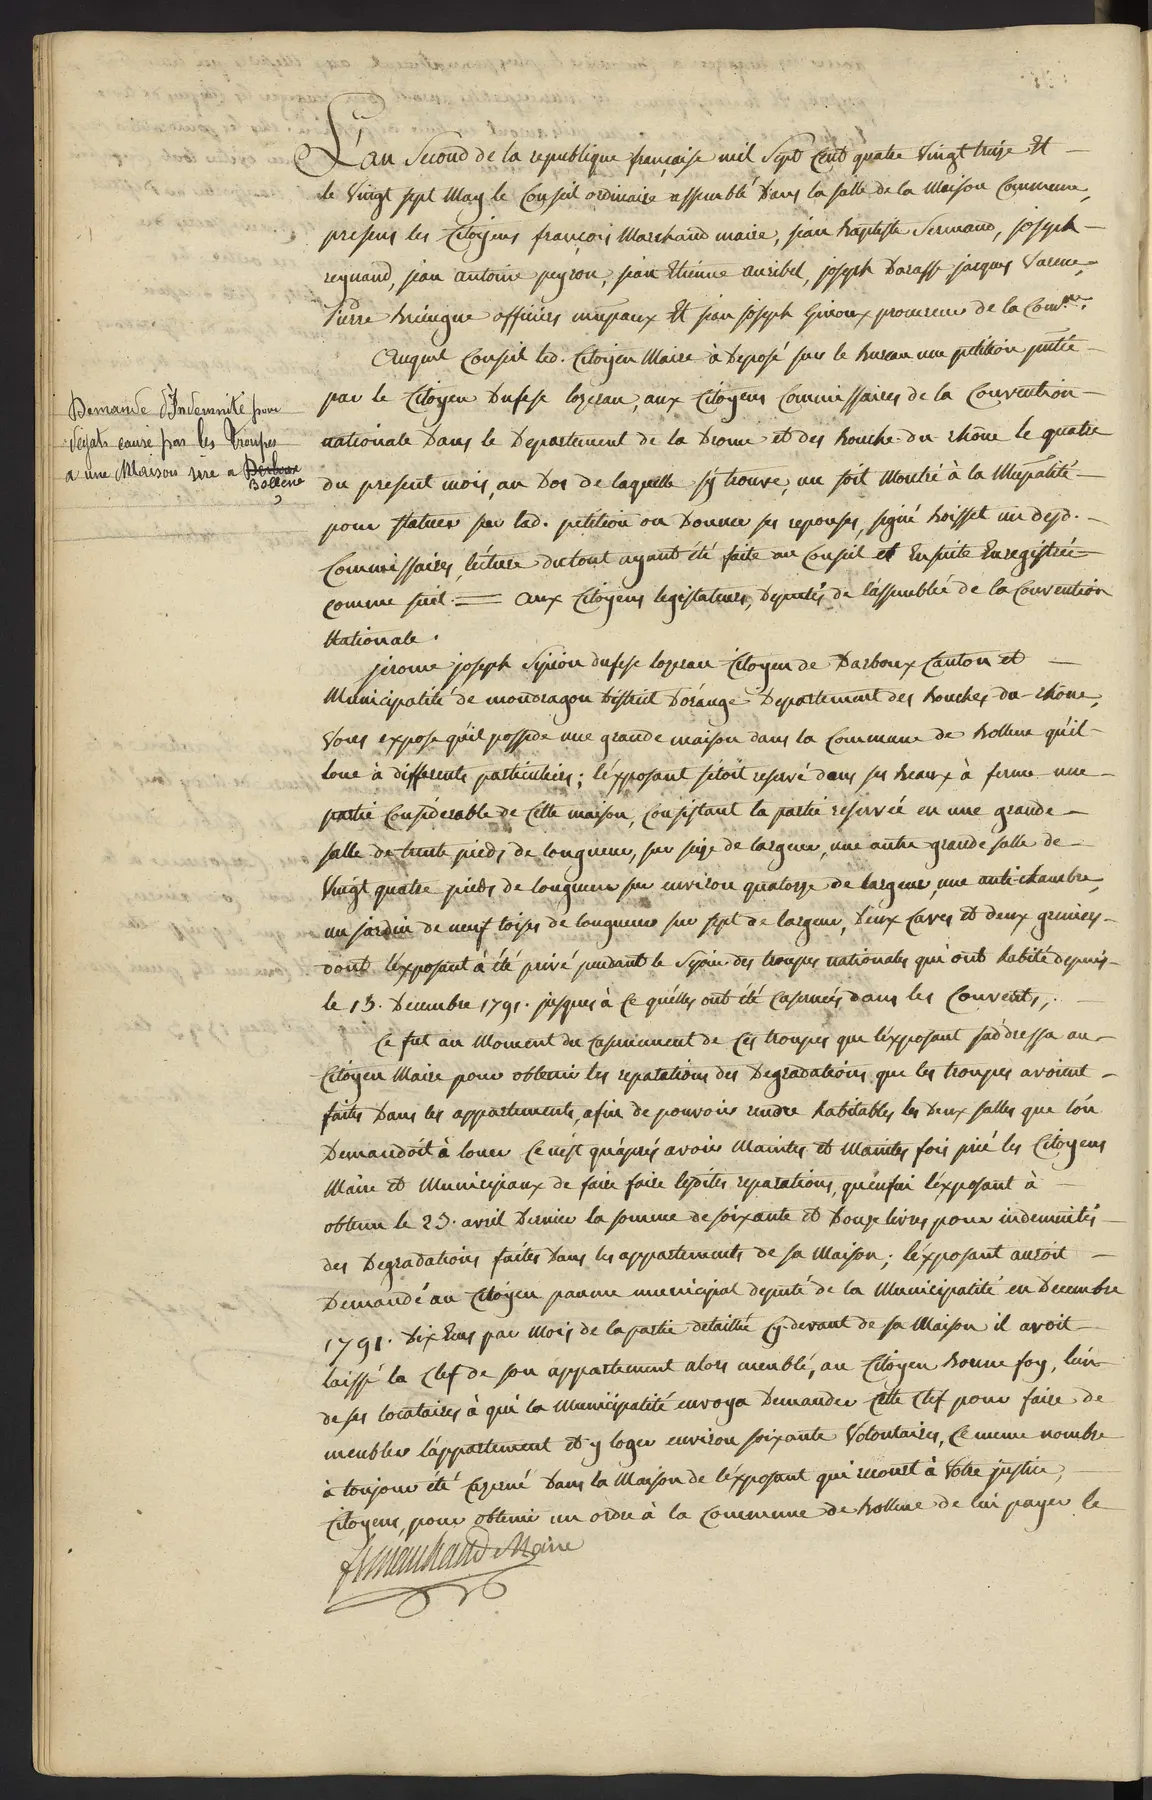 L'an Second de la republique française mil Sept Cent quatre Vingt treize Et
le Vingt sept May le Conseil ordinaire assemblé Dans la salle de la Maison Commune,
presens les Citoyens françois Marchand maire, jean Baptiste Sermand, joseph
reynaud, jean antoine peyron, jean Etienne auribel, joseph Darasse jacques Varene,
Pierre Bréingue officiers mupaux Et jean joseph Giroux procureur de la Comne.
Auquel Conseil led. Citoyen Maire à Deposé sur le Bureau une petition pntée
par le Citoyen Dufese lozeran, aux Citoyens Commissaires de la Convention
nationale Dans le Departement de la Drome et des Bouche du rhône le quatre
du present mois, au Dos de laquelle s'y trouve, un soit Montré à la Mupalité
pour statuer sur lad. petition ou Donner ses reponses, signé Boisset un desd.
Commissaires, lécture du tout ayant été faite au Conseil et Ensuite Enregistrée
comme suit. = aux Citoyens legislateurs, Deputés de l'assemblée de la Convention
Nationale.
Demande d'Indemnité pour
dégats causé par les troupes
a une Maison sise a Derboux
Bollene
jerome joseph Sipion dufese lozeran Citoyen de Darboux Canton et
Municipalité de mondragon District D'orange Departement des Bouches du rhône,
Vous expose qu'il possede une grande maison dans la Commune de Bollene qu'il
loue à differents particuliers; l'éxposant s'étoit reservé dans ses Beaux à ferme une
partie Considerable de Cette maison, Consistant la partie reservée en une grande
salle de trente pieds de longueur, sur seize de largeur, une autre grande salle de
Vingt quatre pieds de longueur sur environ quatorze de largeur, une antichambre,
un jardin de neuf toises de longueur sur sept de largeur, Deux Caves et deux greniers
dont l'éxposant à été privé pendant le Sejour des troupes nationales qui ont habité depuis
le 13. Decembre 1791. jusques à Ce quélles ont été Casernées dans les Couvents,.
Ce fut au Moment du Casernement de Ces troupes que l'éxposant s'addressa au
Citoyen Maire pour obtenir les reparations des Degradations que les troupes avoient
faites Dans les appartements, afin de pouvoir rendre habitables les Deux salles que l'ón
Demandoit à louer Ce n'est qu'áprés avoir Maintes et Maintes fois prié les Citoyens
Maire et Municipaux de faire faire lesdites reparations, qu'énfin l'éxposant à
obtenu le 23. avril Dernier la somme de soixante et Douze livres pour indemnités
des Degradations faites Dans les appartements de sa Maison; l'éxposant auroit
Demandé au Citoyen paume municipal deputé de la Municipalité en Decembre
1791. Dix Ecus par Mois de la partie detaillée Cy-devant de sa Maison il avoit
laissé la Clef de son appartement alors meublé, au Citoyen Bonne foy, l'ún
de ses locataires à qui la Municipalité envoya Demander Cette Clef pour faire de
meubler l'áppartement et y loger environ soixante Volontaires, Ce meme nombre
à toujour été Caserné Dans la Maison de l'éxposant qui recourt à Votre justice,
Citoyens, pour obtenir un ordre à la Commune de Bollene de lui payer le
fs marchand Maire